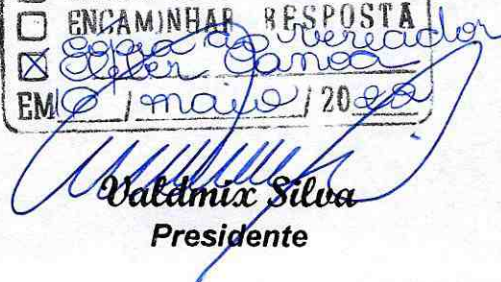 ☐ ENCAMINHAR RESPOSTA
☒ Copia ao vereador
Canoa
EM / maio / 20
Valdmix Silva
Presidente